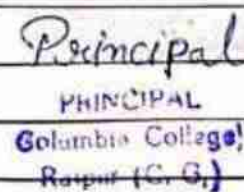 Principal
PRINCIPAL
Columbia College,
Raipur (C. G.)